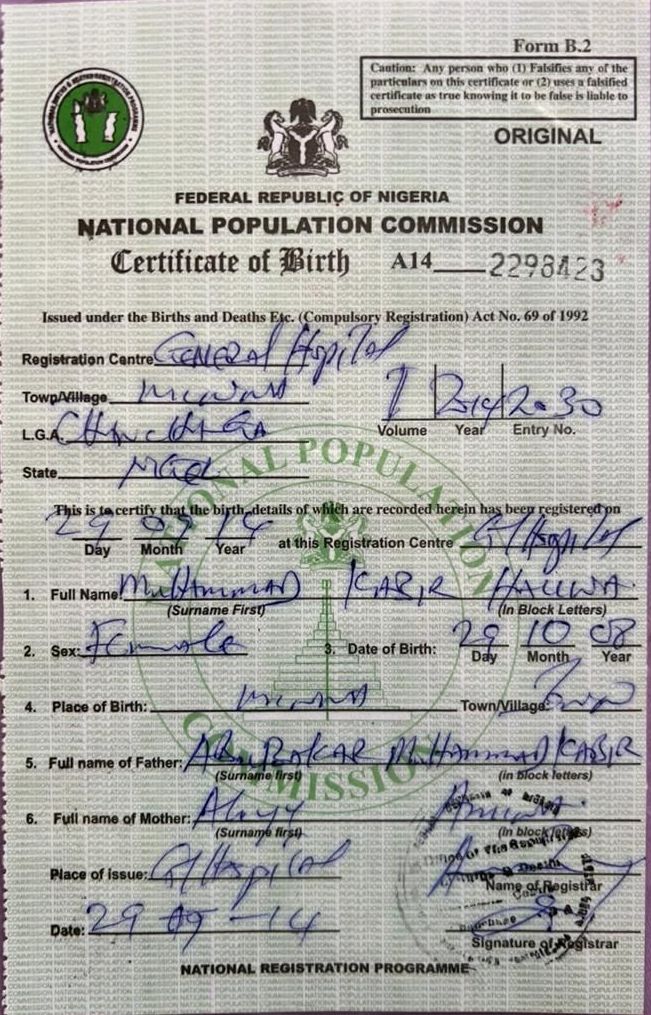 Form B.2
Caution: Any person who (1) Falsifies any of the
particulars on this certificate or (2) uses a falsified
certificate as true knowing it to be false is liable to
prosecution
ORIGINAL
FEDERAL REPUBLIC OF NIGERIA
NATIONAL POPULATION COMMISSION
Certificate of Birth A14 2298423
Issued under the Births and Deaths Etc. (Compulsory Registration) Act No. 69 of 1992
Registration Centre GENERAL Hspital
Town/Village Minna
L.G.A. CHANCHAGA
Volume Year Entry No.
I 2014 2030
State
NATIONAL POPULATION
This is to certify that the birth, details of which are recorded herein has been registered on
29 09 14 at this Registration Centre G/Hspital
Day Month Year
1. Full Name: MUHAMMAD KABIR HAUWA
(Surname First) (In Block Letters)
2. Sex: Female 3. Date of Birth: 29 10 08
Day Month Year
4. Place of Birth: Minna Town/Village:
COMMISSION
5. Full name of Father: ABUBAKAR MUHAMMAD KABIR
(Surname first) (in block letters)
6. Full name of Mother: Aliyu
(Surname first) (in block letters)
Place of issue: G/Hspital
Name of Registrar
Date: 29 09 -14
Signature of Registrar
NATIONAL REGISTRATION PROGRAMME